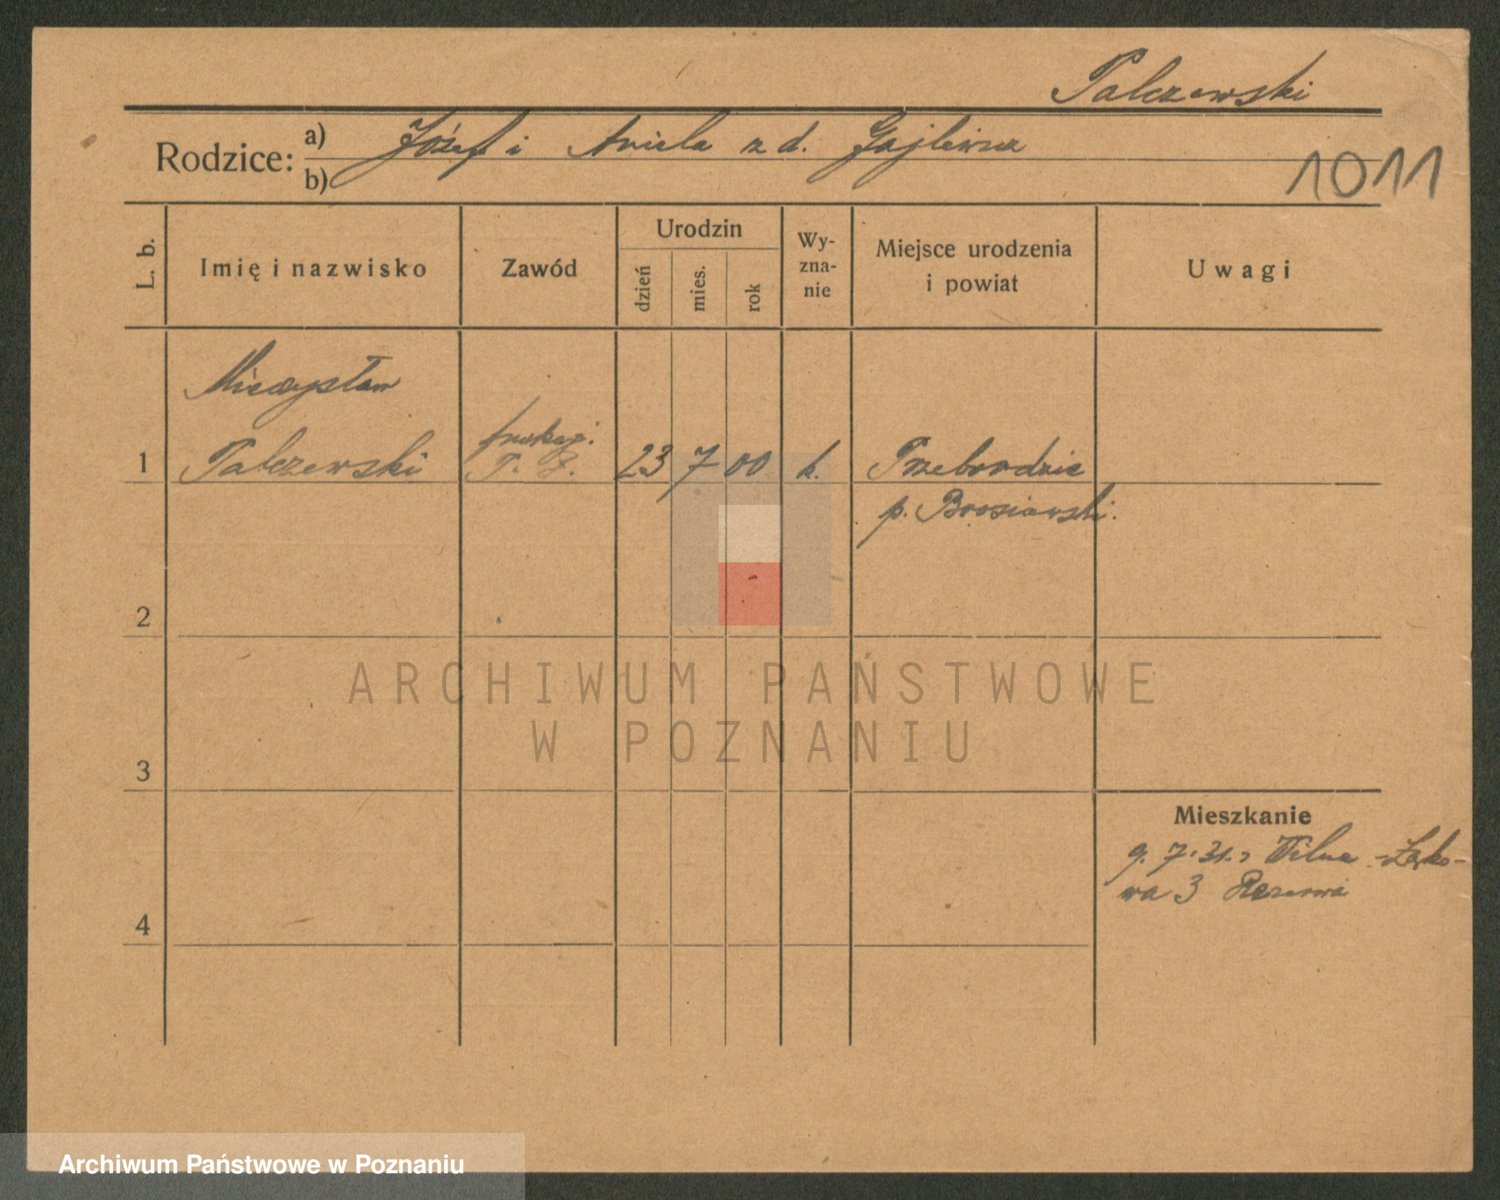 Palczewski
Rodzice: a) Józef i Aniela z d. Gajlewska
b)
1011
L. b.
Imię i nazwisko
Zawód
Urodzin
dzień
mies.
rok
Wy-
zna-
nie
Miejsce urodzenia
i powiat
Uwagi
Mieczysław
1 Palczewski
23 7 00 k. Przebrodzie
p. Brasławski.
2
ARCHIWUM PAŃSTWOWE
W POZNANIU
3
Mieszkanie
9. 7. 31. z Wilna - Łąko-
wa 3
4
Archiwum Państwowe w Poznaniu